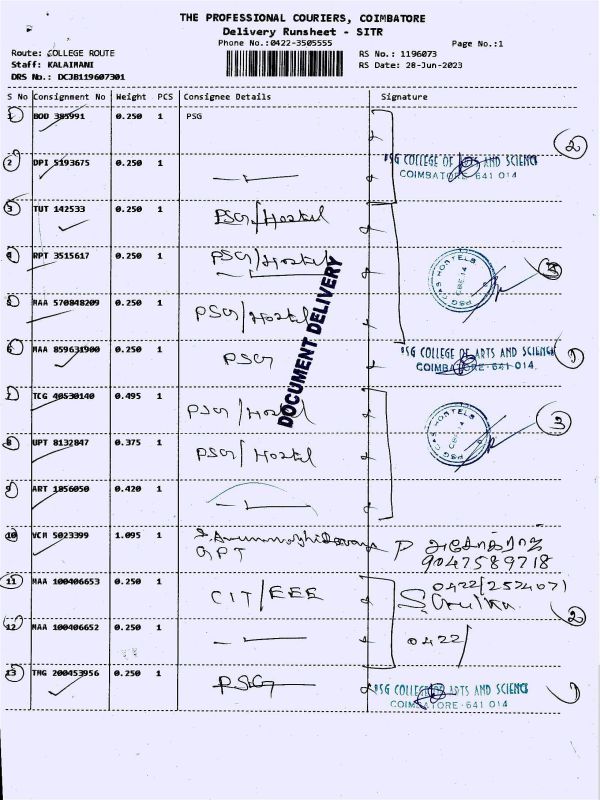 THE PROFESSIONAL COURIERS, COIMBATORE
Delivery Runsheet - SITR
Phone No.:0422-3505555
Page No.:1
Route: COLLEGE ROUTE
RS No.: 1196073
Staff: KALAIMANI
RS Date: 28-Jun-2023
DRS No.: DCJB119607301
S No Consignment No Weight PCS Consignee Details Signature
1 BOD 385991 0.250 1 PSG
2
2 DPI 5193675 0.250 1
PSG COLLEGE OF ARTS AND SCIENCE
COIMBATORE - 641 014
3 TUT 142533 0.250 1 PSG/Hostel
4 RPT 3515617 0.250 1 PSG/Hostel
PSG CAS HOSTELS
CBE-14
4
5 MAA 570848209 0.250 1 PSG/Hostel
DOCUMENT DELIVERY
6 MAA 859631900 0.250 1 PSG
PSG COLLEGE OF ARTS AND SCIENCE
COIMBATORE - 641 014.
7 TCG 40530140 0.495 1 PSG/Hostel
PSG CAS HOSTELS
CBE-14
3
8 UPT 8132847 0.375 1 PSG/Hostel
9 ART 1856050 0.420 1
10 VCM 5023399 1.095 1
GPT P
9047589718
11 MAA 100406653 0.250 1 CIT/EEE
0422/2524071
2
12 MAA 100406652 0.250 1 0422/
13 TMG 200453956 0.250 1 PSG
PSG COLLEGE OF ARTS AND SCIENCE
COIMBATORE - 641 014